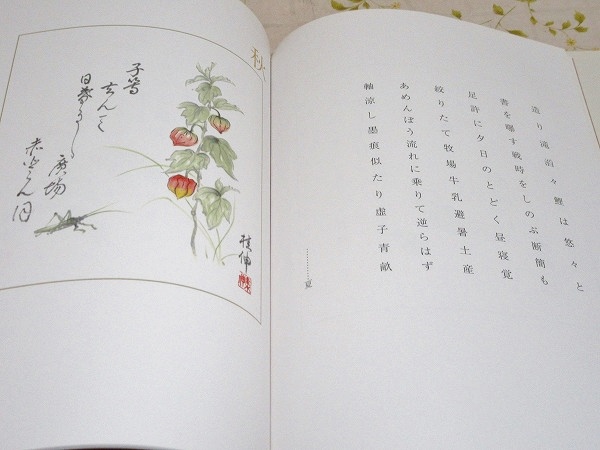 造り滝滔々鯉は悠々と
書を曝す戦時をしのぶ断簡も
足許に夕日のとどく昼寝覚
絞りたて牧場牛乳避暑土産
あめんぼう流れに乗りて逆らはず
軸涼し墨痕似たり虚子青畝
夏
秋
子等
日暮
広場